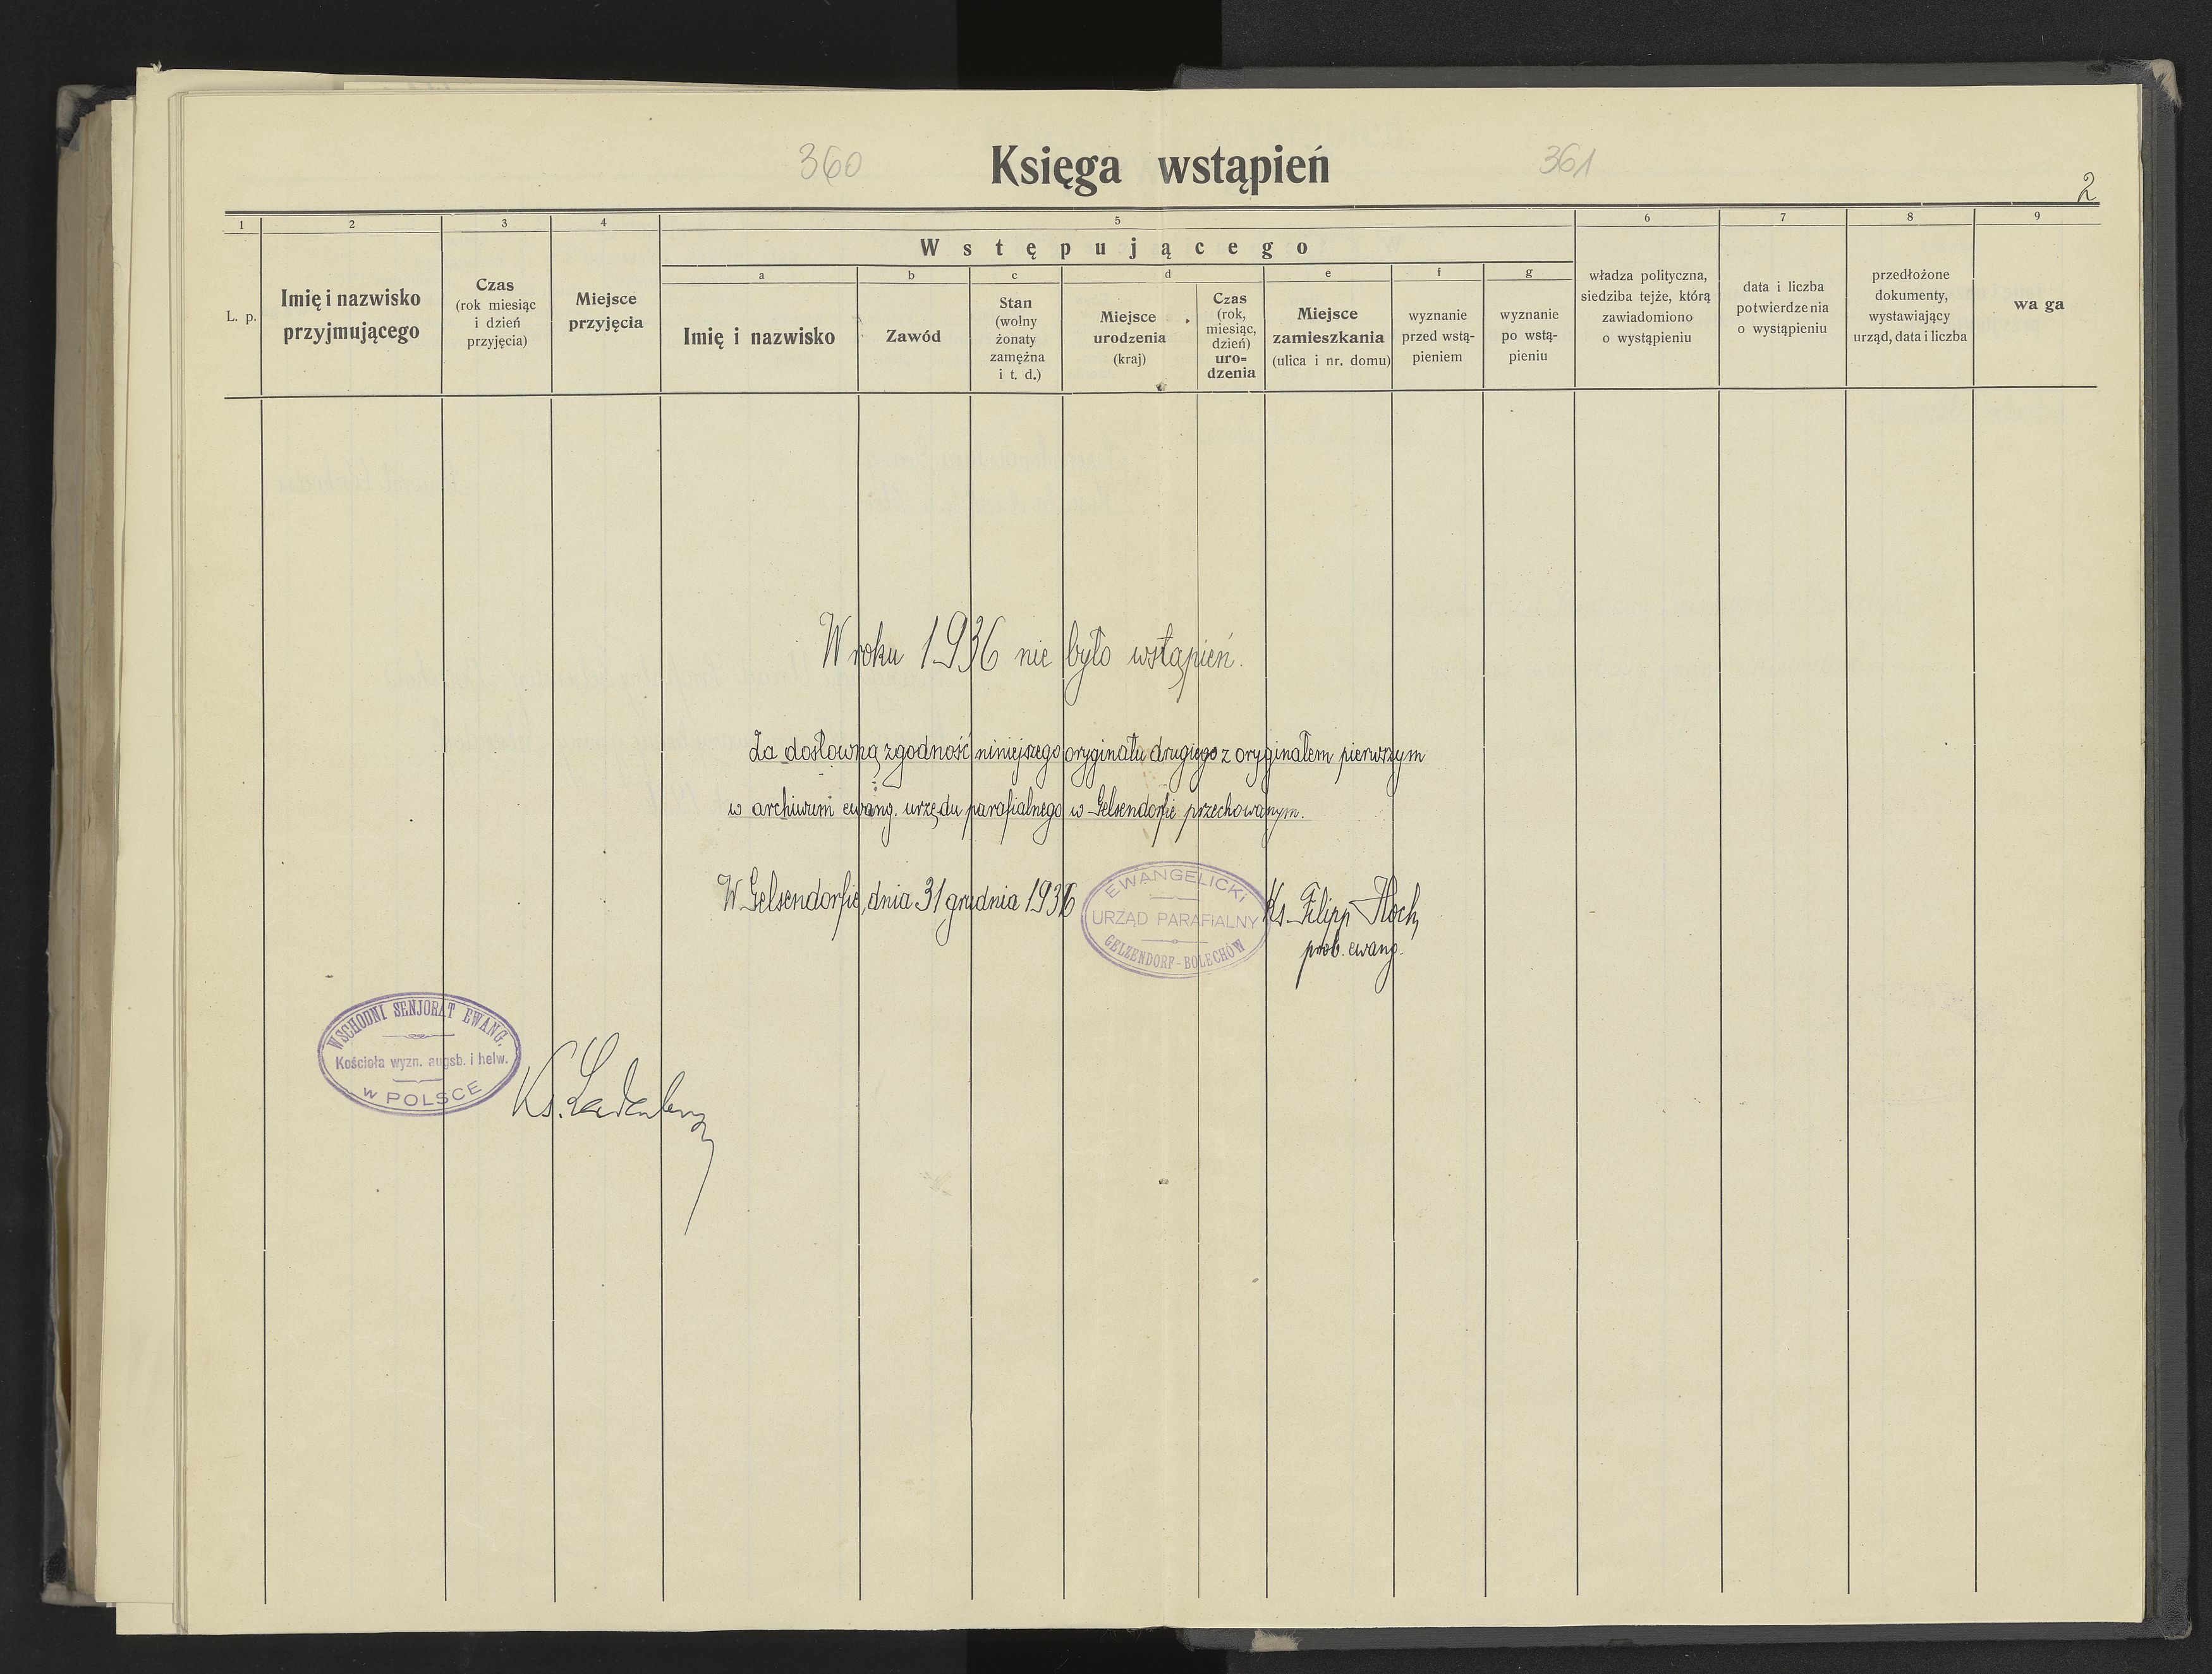 360 Księga wstąpień 361
2
1 2 3 4 5 6 7 8 9
Wstępującego
a b c d e f g
L. p.
Imię i nazwisko
przyjmującego
Czas
(rok miesiąc
i dzień
przyjęcia)
Miejsce
przyjęcia
Imię i nazwisko
Zawód
Stan
(wolny
żonaty
zamężna
i t. d.)
Miejsce
urodzenia
(kraj)
Czas
(rok,
miesiąc,
dzień)
uro=
dzenia
Miejsce
zamieszkania
(ulica i nr. domu)
wyznanie
przed wstą-
pieniem
wyznanie
po wstą-
pieniu
władza polityczna,
siedziba tejże, którą
zawiadomiono
o wystąpieniu
data i liczba
potwierdzenia
o wystąpieniu
przedłożone
dokumenty,
wystawiający
urząd, data i liczba
wa ga
W roku 1936 nie było wstąpień.
Za dosłowną zgodność niniejszego oryginału drugiego z oryginałem pierwszym
w archiwum ewang. urzędu parafialnego w Gelsendorfie przechowanym.
W Gelsendorfie, dnia 31 grudnia 1936
EWANGELICKI
URZĄD PARAFIALNY
GELZENDORF-BOLECHÓW
Ks. Filipp
prob. ewang.
WSCHODNI SENJORAT EWANG.
Kościoła wyzn. augsb. i helw.
w POLSCE
Ks.